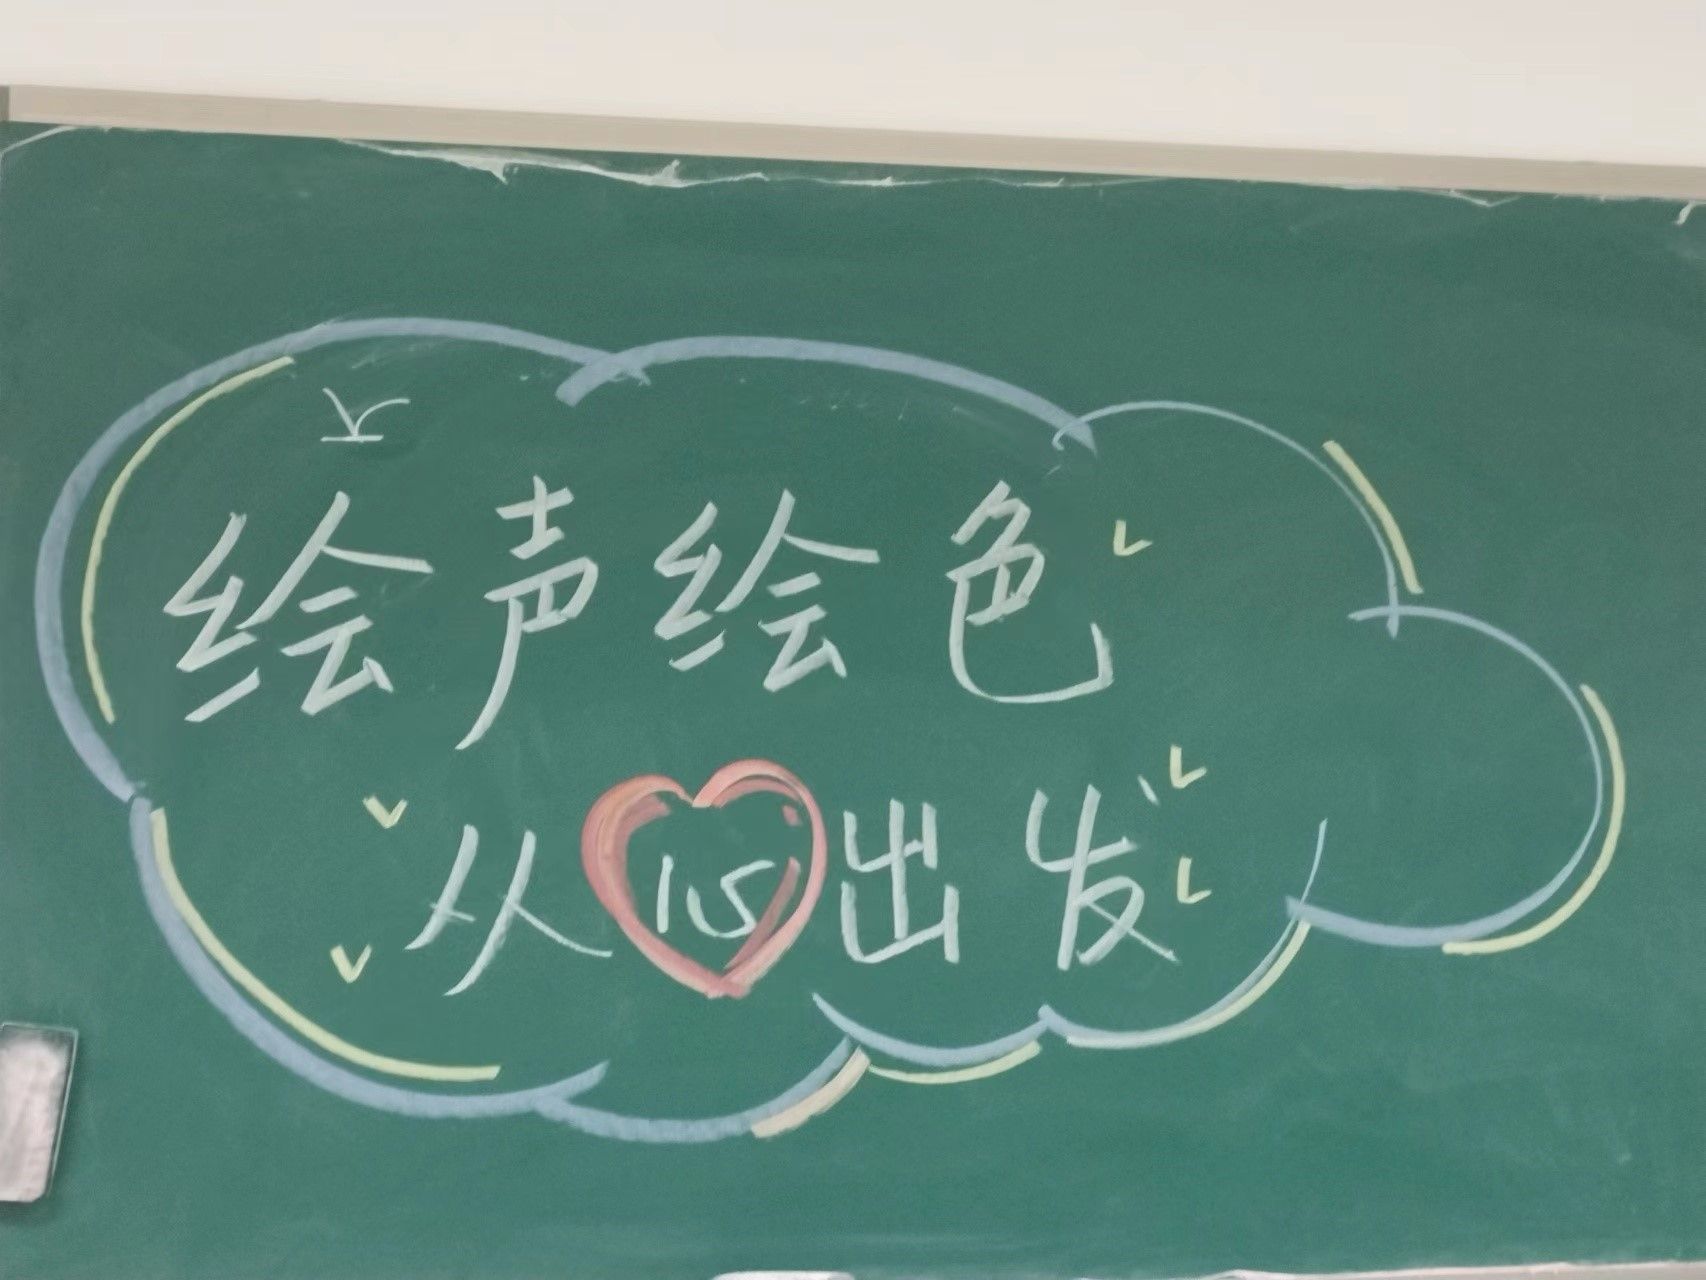 绘声绘色
从15出发